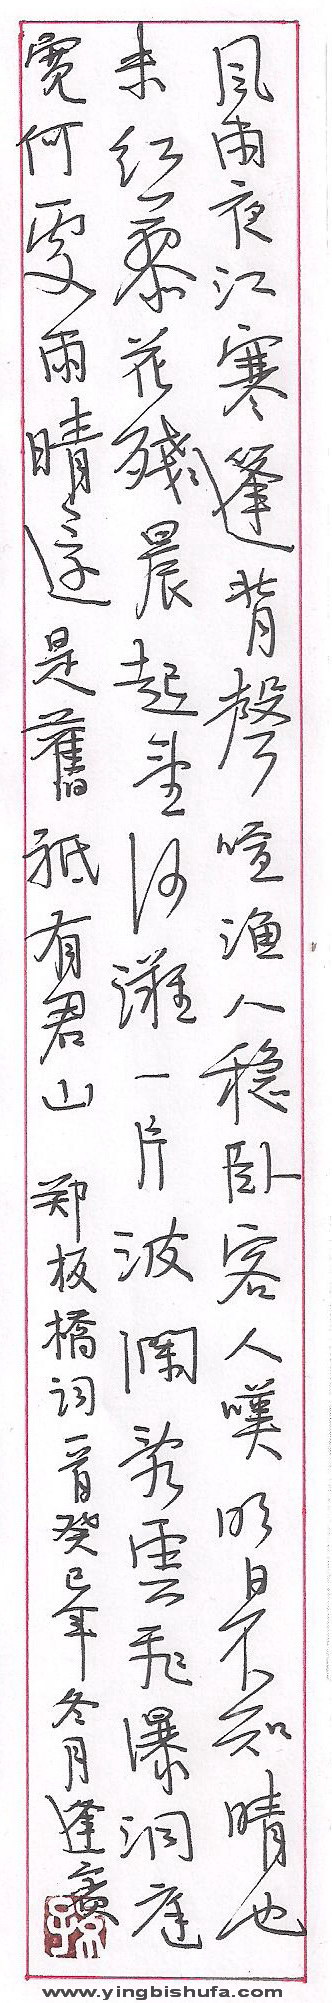 風雨夜江寒篷背聲喧渔人稳卧客人嘆明日不知晴也
未红蓼花殘晨起望沙灘一片波瀾亂雲飛瀑洞庭
寬何處雨晴還是舊祇有君山 郑板橋词一首癸巳年冬月逢
www.yingbishufa.com